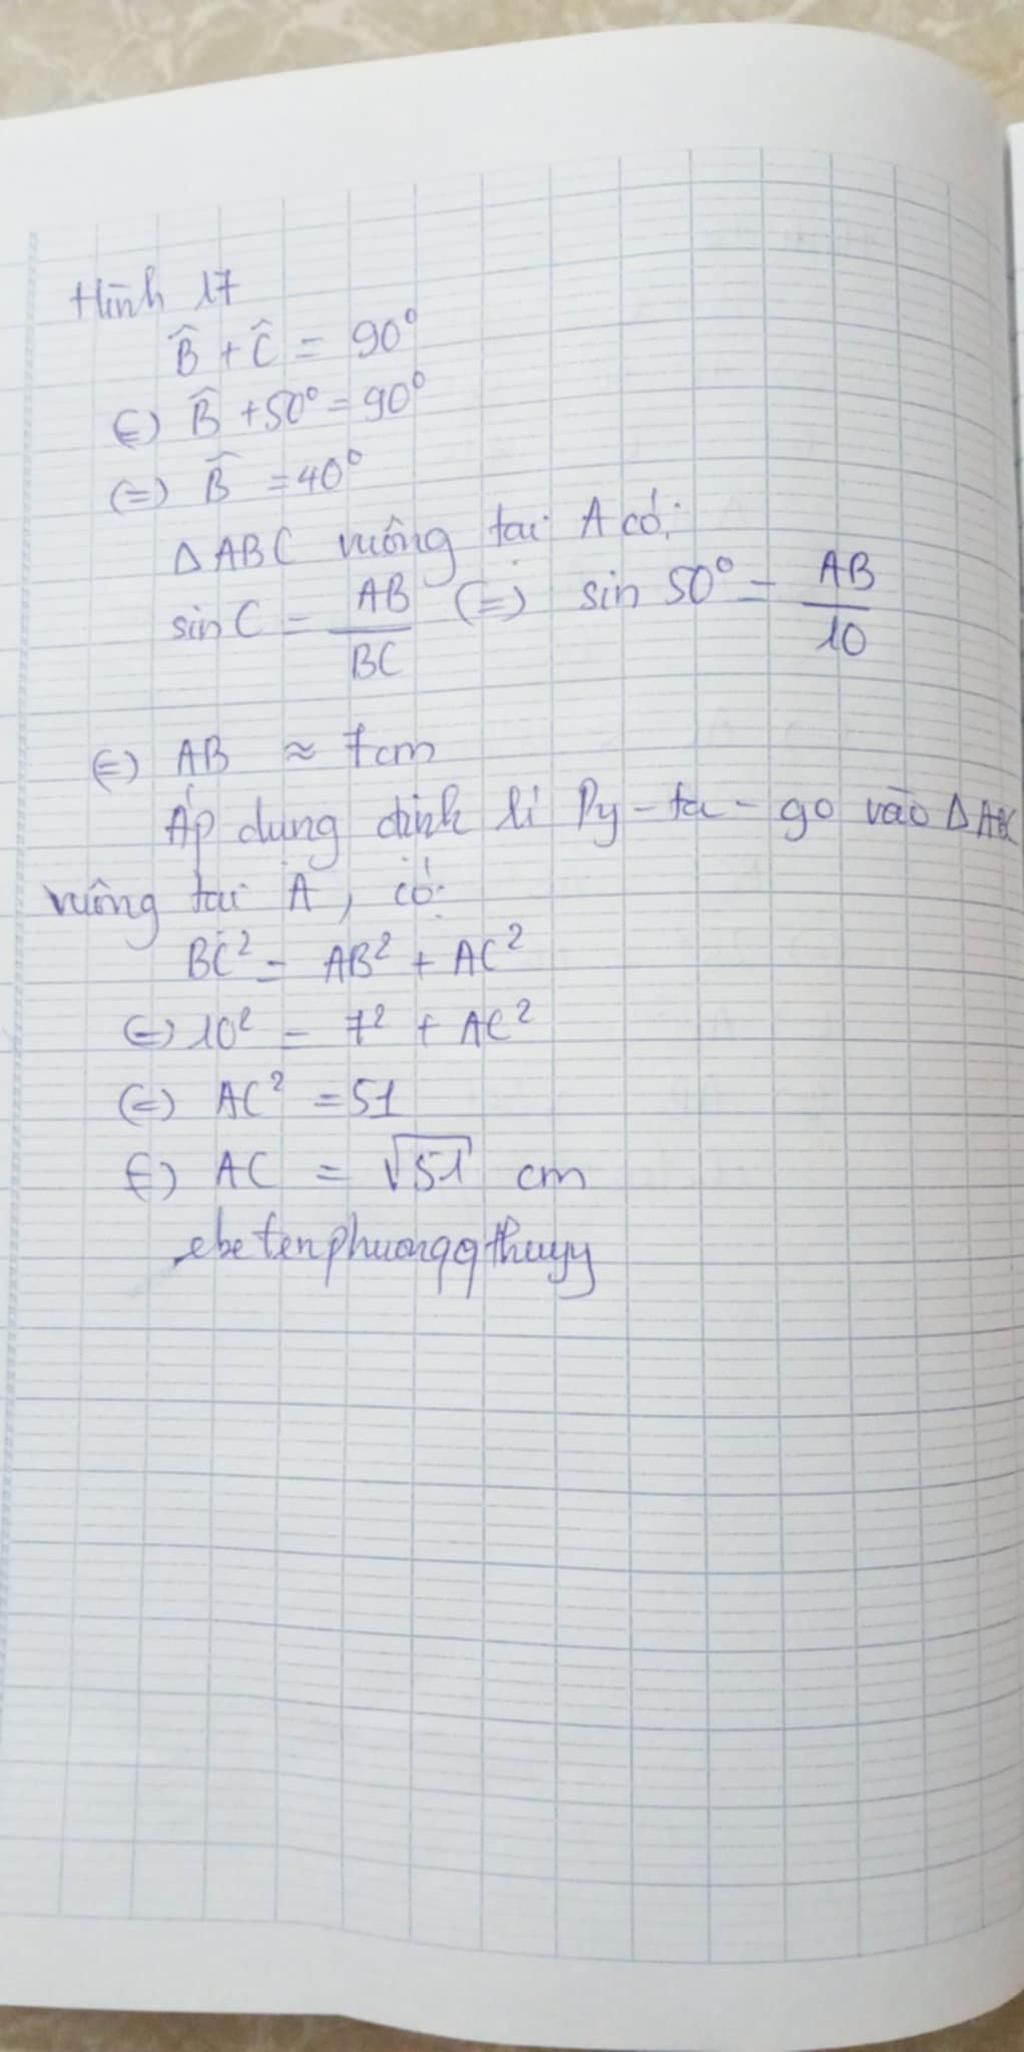 Hình 17
B̂ + Ĉ = 90°
(=) B̂ + 50° = 90°
(=) B̂ = 40°
Δ ABC vuông tại A có:
sin C = AB/BC (=) sin 50° = AB/10
(=) AB ≈ 7cm
Áp dụng định lí Py-ta-go vào Δ ABC
vuông tại A, có:
BC² = AB² + AC²
(=) 10² = 7² + AC²
(=) AC² = 51
(=) AC = √51 cm
ebetenphuongqthuyy